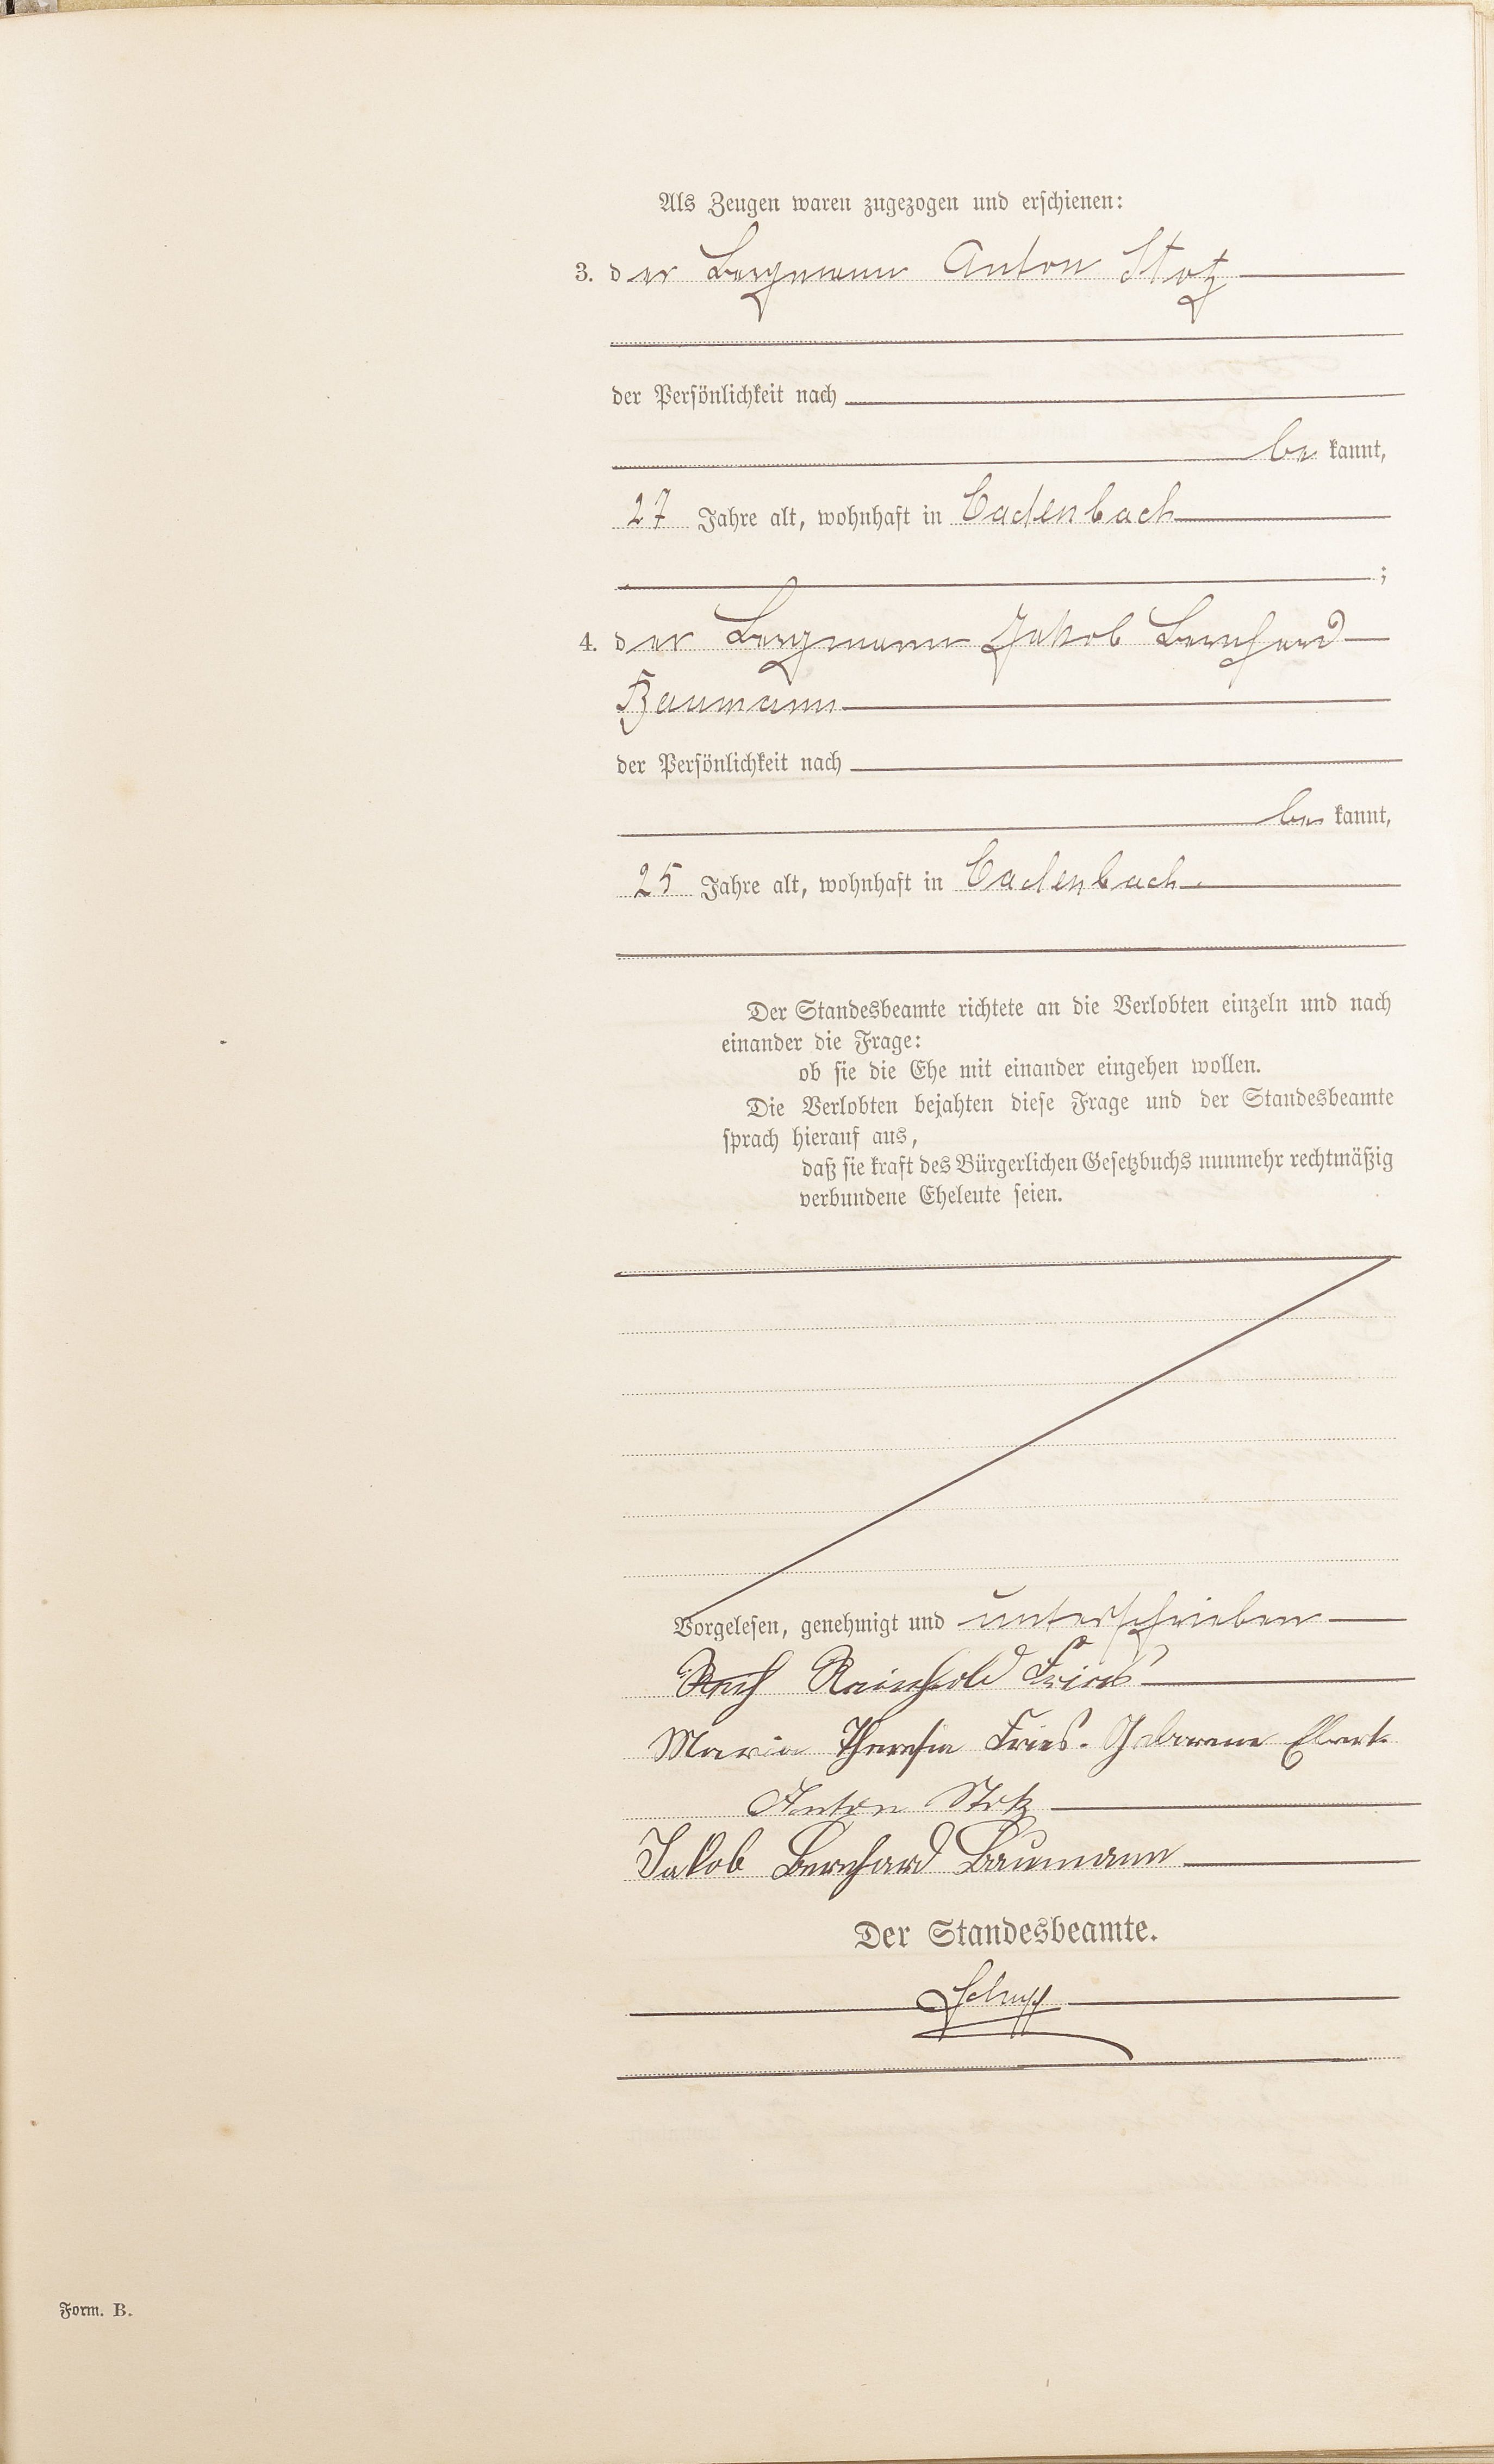 Als Zeugen waren zugezogen und erschienen:
3. der Bergmann Anton Stotz
der Persönlichkeit nach
be kannt,
27 Jahre alt, wohnhaft in Cadenbach
;
4. der Bergmann Jakob Bernhard
Baumann
der Persönlichkeit nach
be kannt,
25 Jahre alt, wohnhaft in Cadenbach
Der Standesbeamte richtete an die Verlobten einzeln und nach
einander die Frage:
ob sie die Ehe mit einander eingehen wollen.
Die Verlobten bejahten diese Frage und der Standesbeamte
sprach hierauf aus,
daß sie kraft des Bürgerlichen Gesetzbuchs nunmehr rechtmäßig
verbundene Eheleute seien.
Vorgelesen, genehmigt und unterschrieben
Reinhold Fries
Maria Theresia Fries. Geborene Ebert.
Anton Stotz
Jakob Bernhard Baumann
Der Standesbeamte.
Schupp
Form. B.